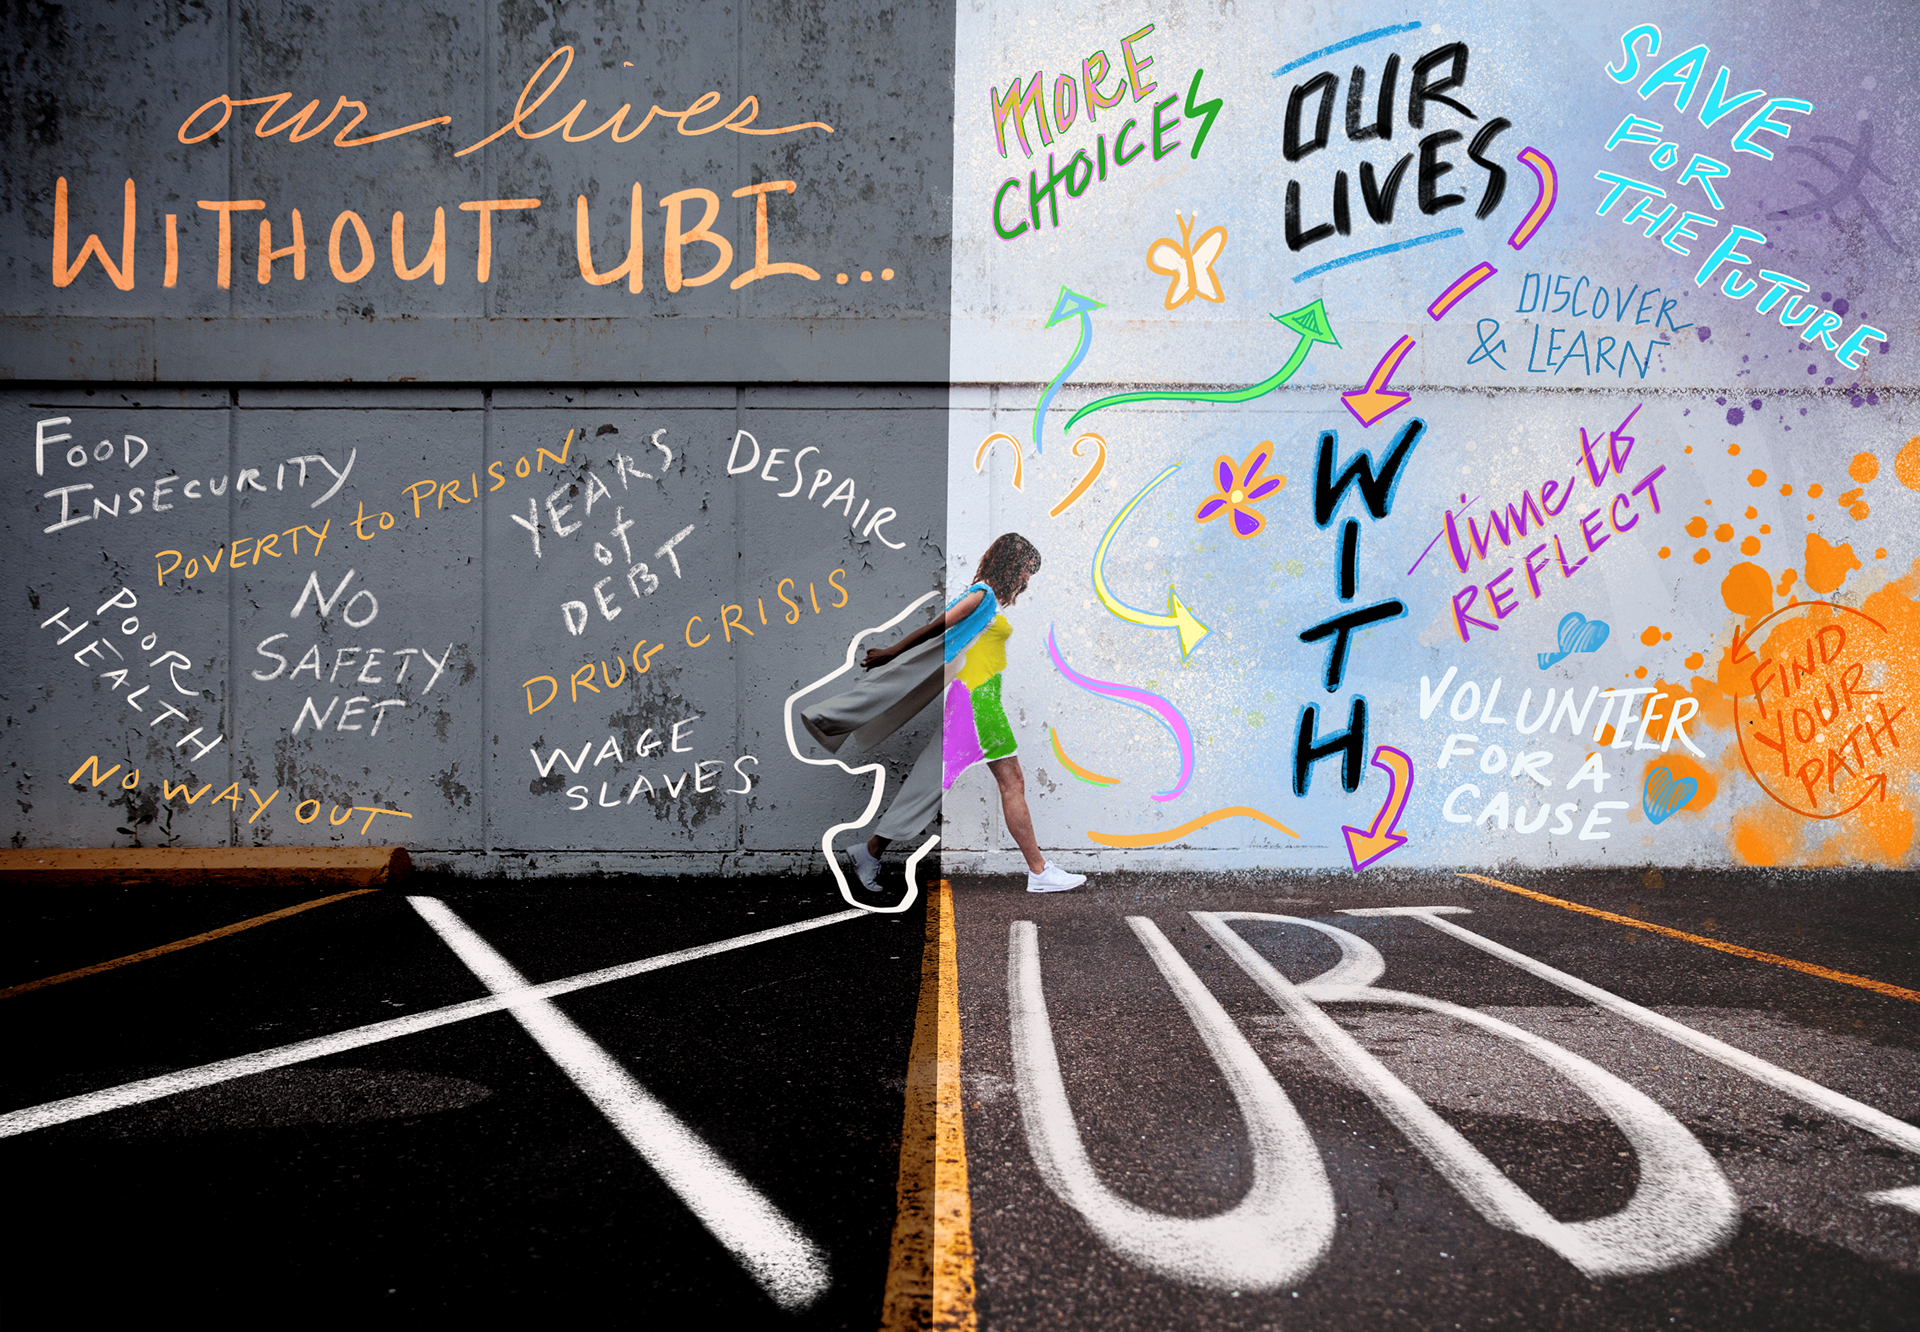 our lives
WITHOUT UBI...
FOOD
INSECURITY
POVERTY to PRISON
YEARS
of
DEBT
DESPAIR
POOR
HEALTH
NO
SAFETY
NET
DRUG CRISIS
WAGE
SLAVES
NO WAY OUT
MORE
CHOICES
OUR
LIVES
WITH
UBI
SAVE
FOR
THE FUTURE
DISCOVER
& LEARN
time to
REFLECT
VOLUNTEER
FOR A
CAUSE
FIND
YOUR
PATH